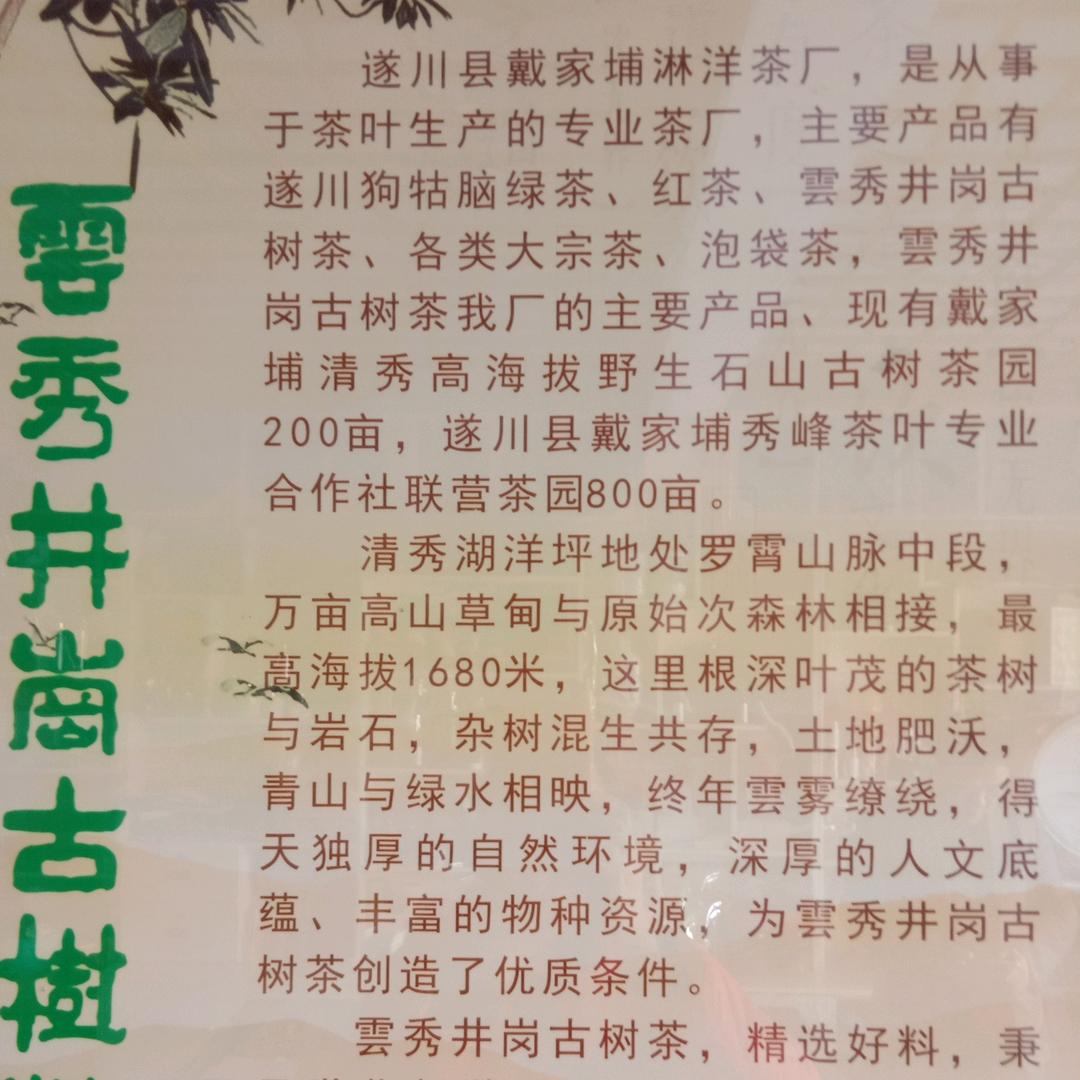 雲秀井崗古樹
遂川县戴家埔淋洋茶厂，是从事
于茶叶生产的专业茶厂，主要产品有
遂川狗牯脑绿茶、红茶、雲秀井岗古
树茶、各类大宗茶、泡袋茶，雲秀井
岗古树茶我厂的主要产品、现有戴家
埔清秀高海拔野生石山古树茶园
200亩，遂川县戴家埔秀峰茶叶专业
合作社联营茶园800亩。
清秀湖洋坪地处罗霄山脉中段，
万亩高山草甸与原始次森林相接，最
高海拔1680米，这里根深叶茂的茶树
与岩石，杂树混生共存，土地肥沃，
青山与绿水相映，终年雲雾缭绕，得
天独厚的自然环境，深厚的人文底
蕴、丰富的物种资源，为雲秀井岗古
树茶创造了优质条件。
雲秀井岗古树茶，精选好料，秉